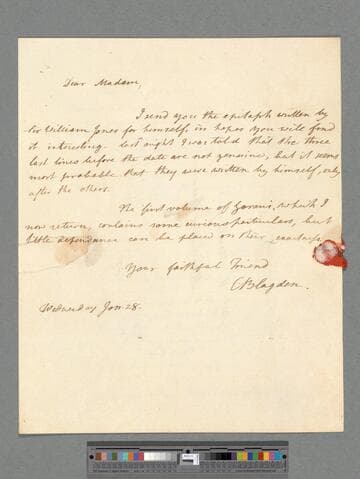 Dear Madam,
I send you the epitaph written by
Sir William Jones for himself, in hopes you will find
it interesting. Last night I was told that the three
last lines before the date are not genuine, but it seems
most probable that they were written by himself, only
after the others.
The first volume of which I
now return, contains some curious particulars, but
little dependance can be placed on their exactness.
Your faithful Friend
C Blagden.
Wednesday Jan. 28.